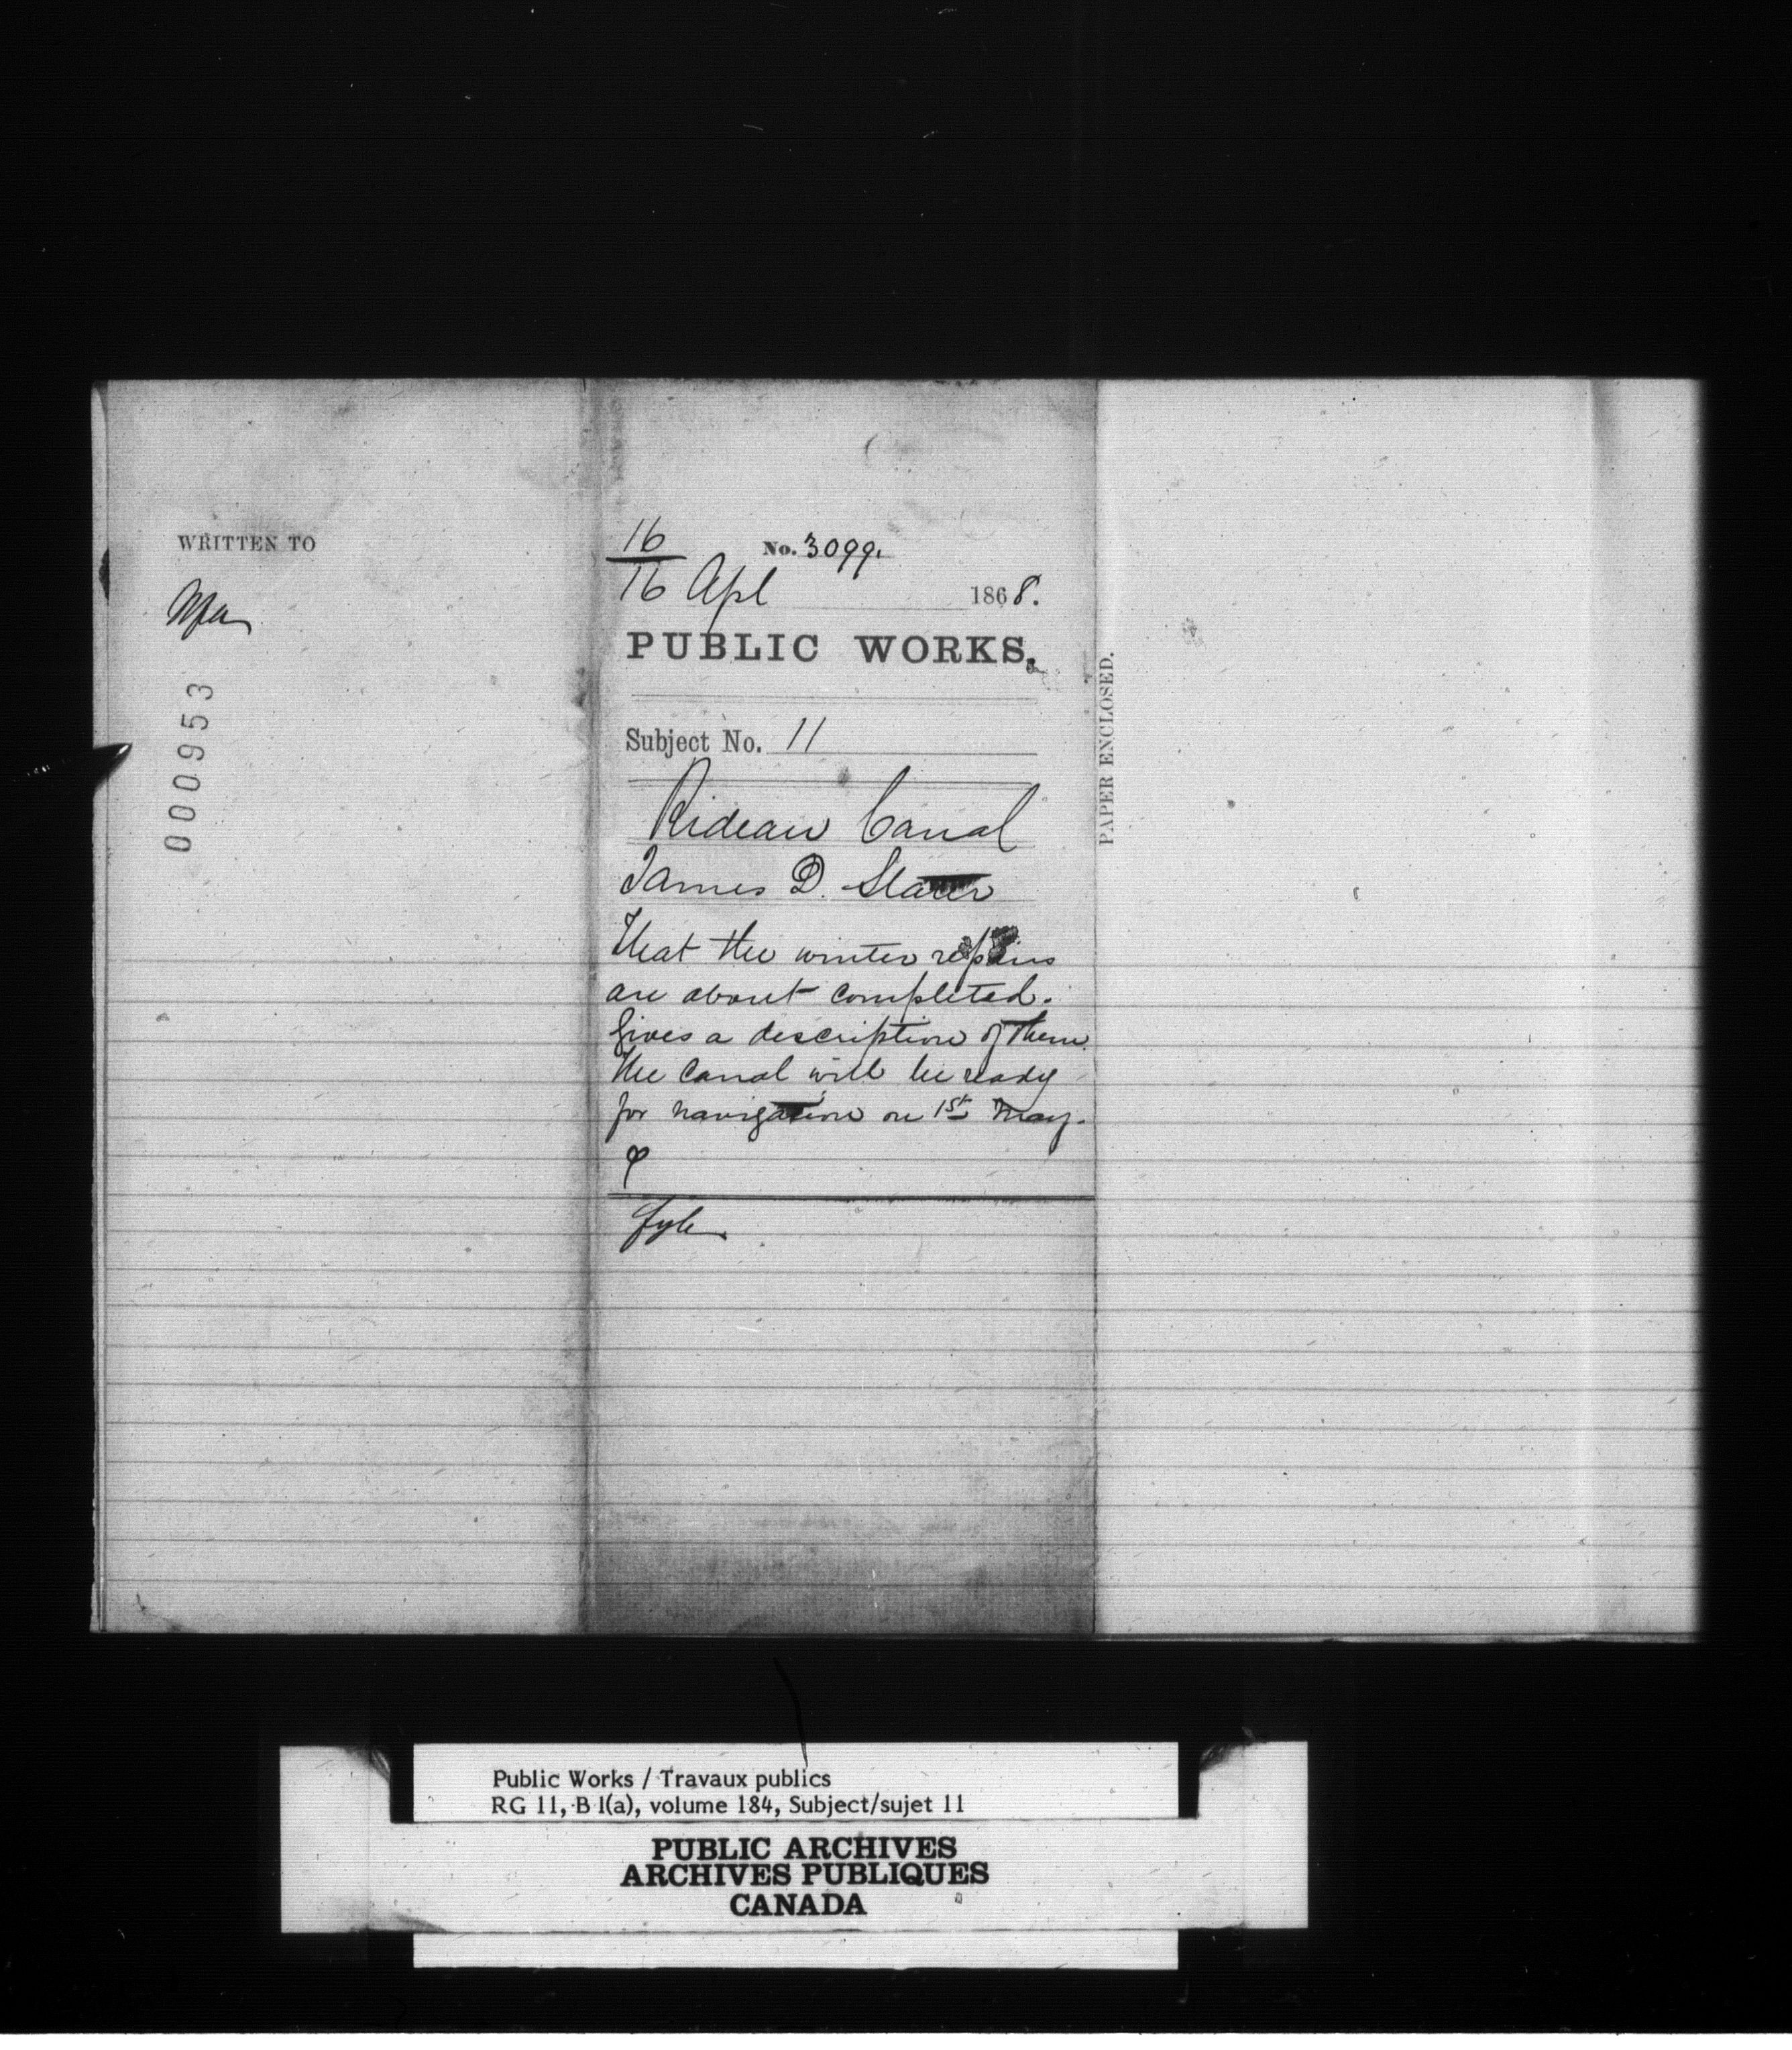 WRITTEN TO
000953
16
No. 3099.
16 Apl 1868.
PUBLIC WORKS,
Subject No. 11
Rideau Canal
James D. Slater
That the winter repairs
are about completed.
Gives a description of them.
The Canal will be ready
for navigation on 1st May.
Fyle
PAPER ENCLOSED.
Public Works / Travaux publics
RG 11, B 1(a), volume 184, Subject/sujet 11
PUBLIC ARCHIVES
ARCHIVES PUBLIQUES
CANADA